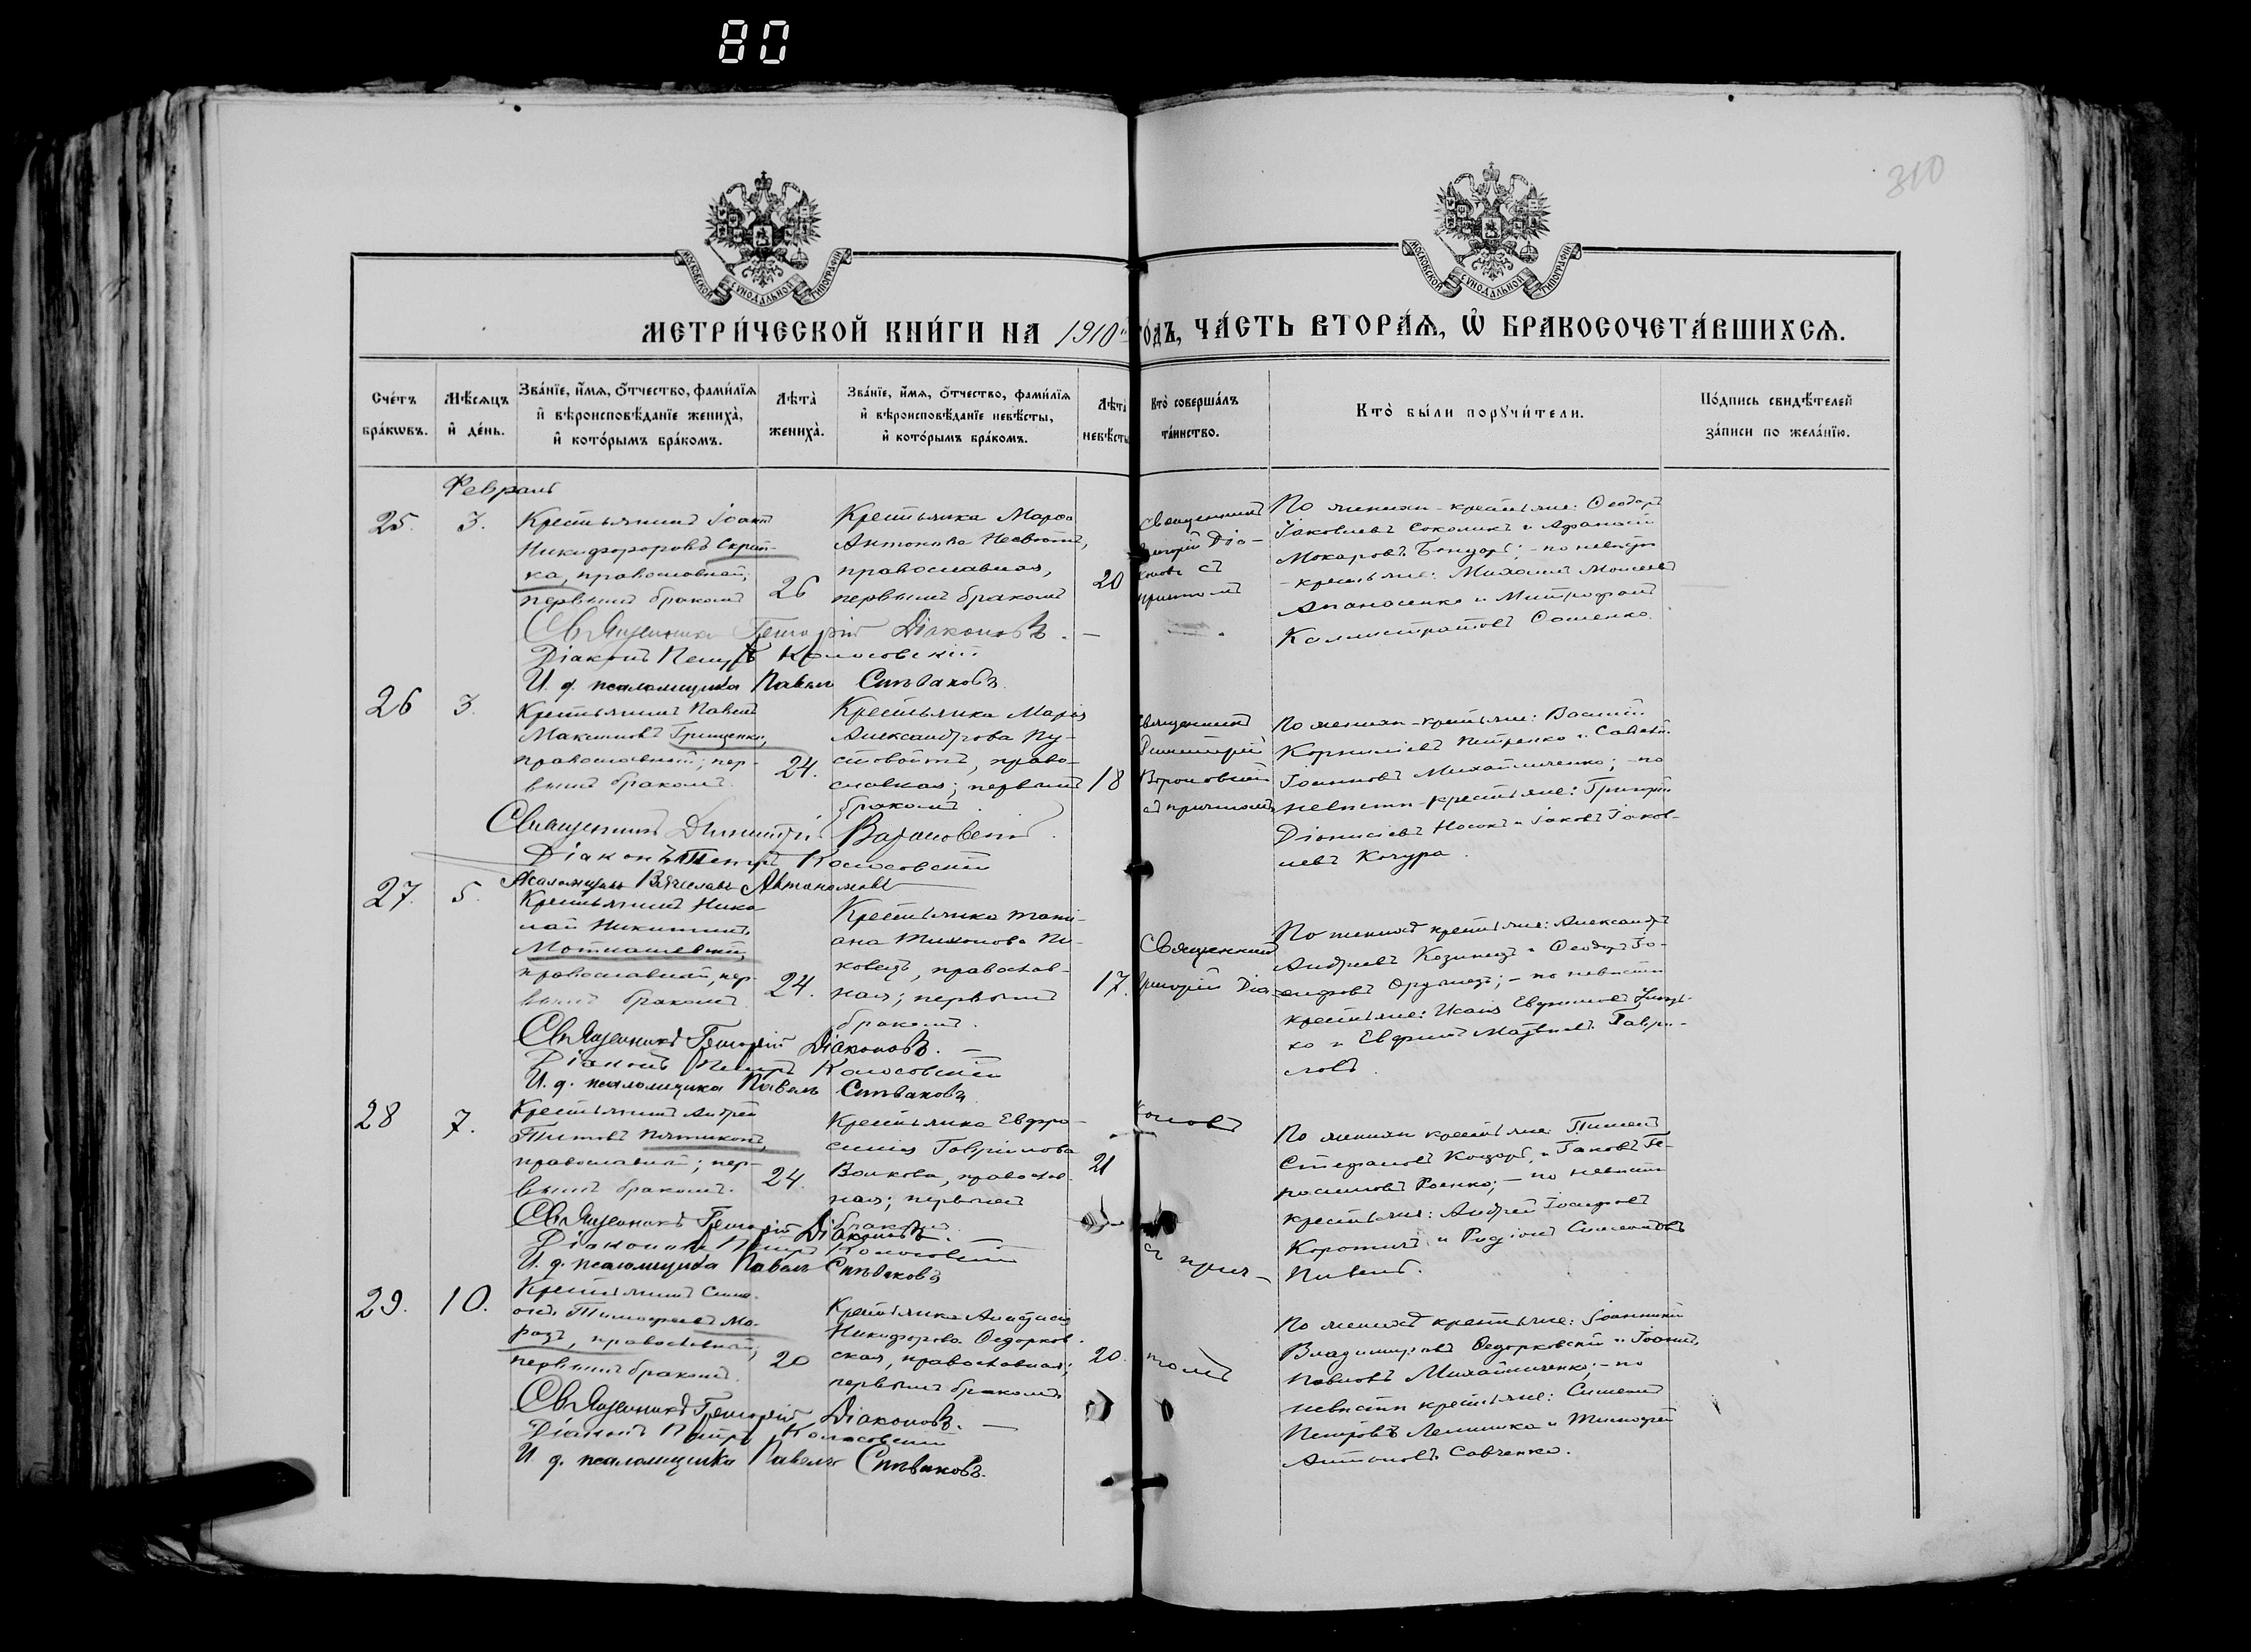 80
310
МОСКОВСКОЙ СѴНОДАЛЬНОЙ ТИПОГРАФІИ
МОСКОВСКОЙ СѴНОДАЛЬНОЙ ТИПОГРАФІИ
МЕТРИ́ЧЕСКОЙ КНИ́ГИ НА 1910й го́дъ, ЧА́СТЬ ВТОРА́Ѧ, Ѡ҆ БРАКОСОЧЕТА́ВШИХСѦ.
Сче́тъ бра́кѡвъ.
Мѣ́сяцъ и҆ де́нь.
Зва́нїе, и҆́мѧ, ѻ҆́тчество, фами́лїѧ и҆ вѣроисповѣ́данїе жениха̀, и҆ кото́рымъ бра́комъ.
Лѣта̀ жениха̀.
Зва́нїе, и҆́мѧ, ѻ҆́тчество, фами́лїѧ и҆ вѣроисповѣ́данїе невѣ́сты, и҆ кото́рымъ бра́комъ.
Лѣта̀ невѣ́сты
Кто̀ соверша́лъ та́инство.
Кто̀ бы́ли порꙋчи́тели.
По́дпись свидѣ́телей за́писи по жела́нїю.
Февраль
25. 3.
Крестьянинъ Іоаннъ
Никифоровъ Скрип-
ка, православный,
первымъ бракомъ
26
Крестьянка Марѳа
Антонова
православная,
первымъ бракомъ
20
Священникъ
Григорій Діа-
коновъ съ
причтомъ
По женихѣ - крестьяне: Ѳеодоръ
Іаковлевъ Соколикъ и Аѳанасій
Макаровъ Бондарь; - по невѣстѣ
- крестьяне: Михаилъ Моисеевъ
Апанасенко и Митрофанъ
Каллистратовъ
Священникъ Григорій Діаконовъ. —
Діаконъ Петръ Колосовскій
И. д. псаломщика Павелъ Спѣваковъ.
26 3.
Крестьянинъ Павелъ
Максимовъ Грищенко,
православный; пер-
вымъ бракомъ.
24.
Крестьянка Марія
Александрова Пу-
стовойтъ, право-
славная; первымъ
бракомъ.
18
Священникъ
Димитрій
Вороновскій
съ причтомъ
По женихѣ - крестьяне: Василій
Корниліевъ Петренко и Савва
Іоанновъ Михайличенко; - по
невѣстѣ - крестьяне: Григорій
Діонисіевъ Носокъ и Іаковъ Іаков-
левъ Кочура.
Священникъ Димитрій Вороновскій.
Діаконъ Петръ Колосовскій
Псаломщикъ Вячеславъ Автономовъ
27. 5.
Крестьянинъ Нико-
лай Никитинъ
православный, пер-
вымъ бракомъ
24.
Крестьянка Тати-
ана Тихонова Пи-
ковецъ, православ-
ная; первымъ
бракомъ.
17.
Священникъ
Григорій Діа-
По женихѣ крестьяне: Александръ
Андреевъ Козинецъ и Ѳеодоръ Іо-
сифовъ - по невѣстѣ
крестьяне: Исаія Евфимовъ
ко и Евфимъ Матвѣевъ Гаври-
ловъ.
Священникъ Григорій Діаконовъ. —
Діаконъ Петръ Колосовскій
И. д. псаломщика Павелъ Спѣваковъ
28 7.
Крестьянинъ Андрей
Титовъ Пятикопъ,
православный; пер-
вымъ бракомъ.
24.
Крестьянка Евфро-
синія Гавріилова
Волкова, православ-
ная; первымъ
бракомъ.
21
коновъ
По женихѣ крестьяне: Пименъ
Стефановъ и Іаковъ Ге-
расимовъ Роенко; - по невѣстѣ
крестьяне: Андрей Іосифовъ
Коротичъ и Родіонъ Симеоновъ
Пивень.
Священникъ Григорій Діаконовъ. —
Діаконъ Петръ Колосовскій
И. д. псаломщика Павелъ Спѣваковъ
съ прич-
29. 10.
Крестьянинъ Симе-
онъ Тимофеевъ Мо-
розъ, православный,
первымъ бракомъ.
20
Крестьянка Анастасія
Никифорова Ѳедорков-
ская, православная;
первымъ бракомъ
20.
томъ
По женихѣ крестьяне: Іоанникій
Владиміровъ Ѳедорковскій и Іоаннъ
Павловъ Михайличенко; - по
невѣстѣ крестьяне: Симеонъ
Петровъ и Тимофей
Антоновъ Савченко.
Священникъ Григорій Діаконовъ. —
Діаконъ Петръ Колосовскій
И. д. псаломщика Павелъ Спѣваковъ.